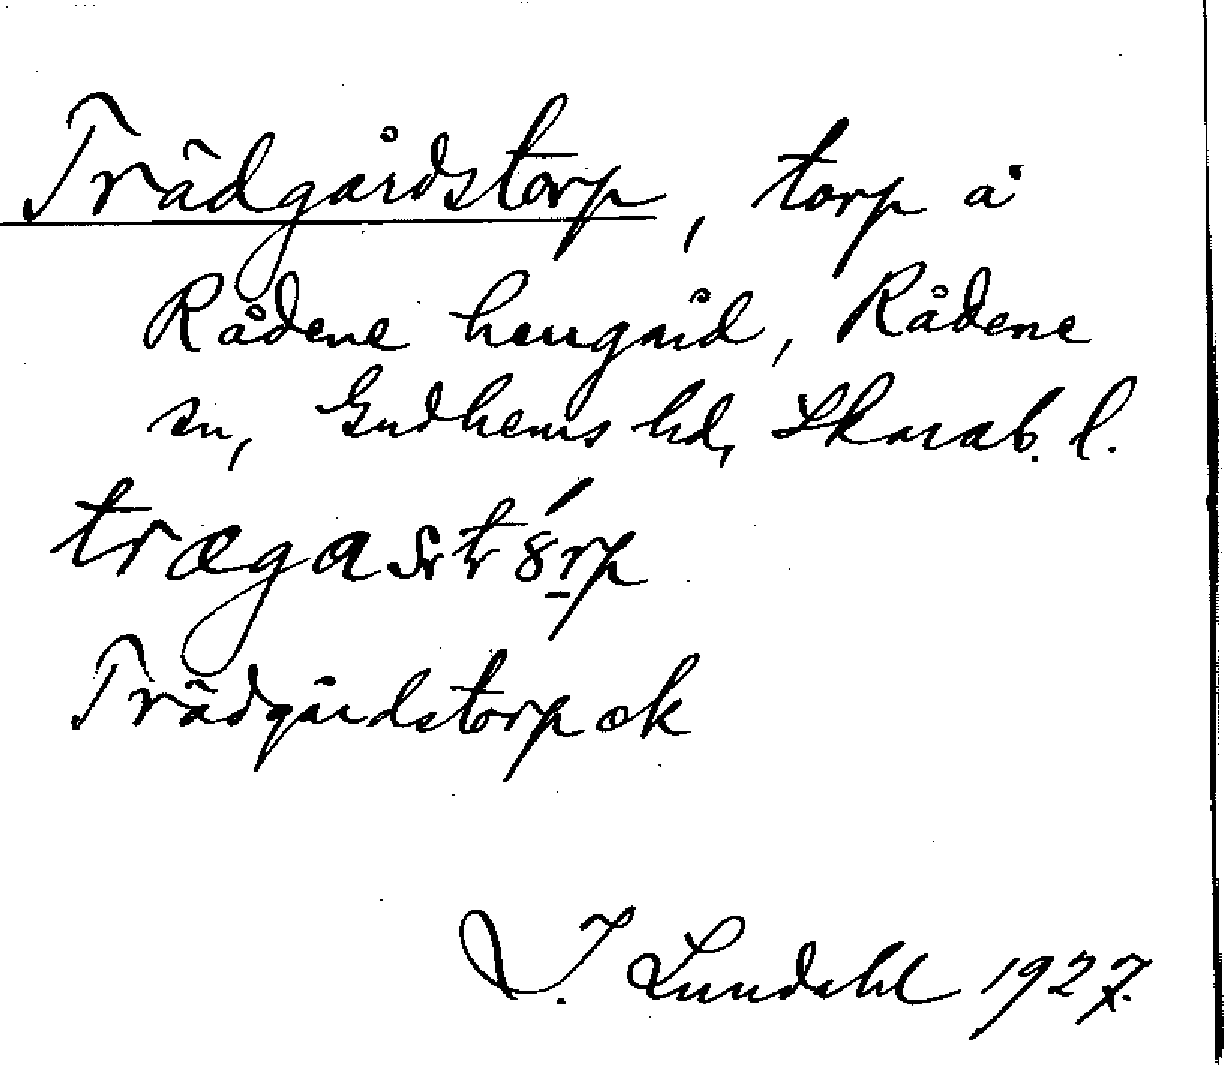 Trädgårdstorp, torp å
Rådene herrgård, Rådene
sn, Gudhems hd, Skarab. l.
Trädgårdstorp ek
I. Lundahl 1927.